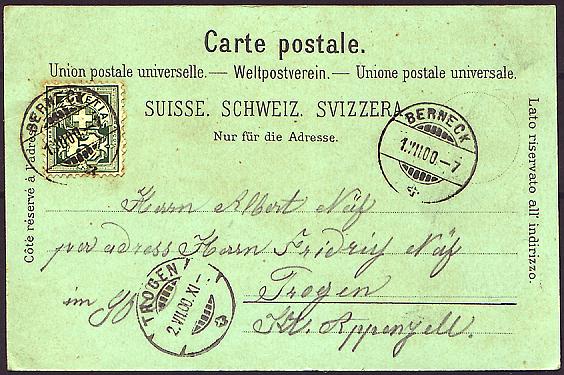 Carte postale.
Union postale universelle. — Weltpostverein. — Unione postale universale.
SUISSE. SCHWEIZ. SVIZZERA.
Nur für die Adresse.
Côté réservé à l'adresse
Lato riservato all' indirizzo.
BERNECK
1.VII.00.-7
BERNECK
1.VII.00.-7
Herrn Albert Näf
per adress Herrn Fridrich Näf
Trogen
im
Kt. Appenzell.
TROGEN
2.VII.00.XI-